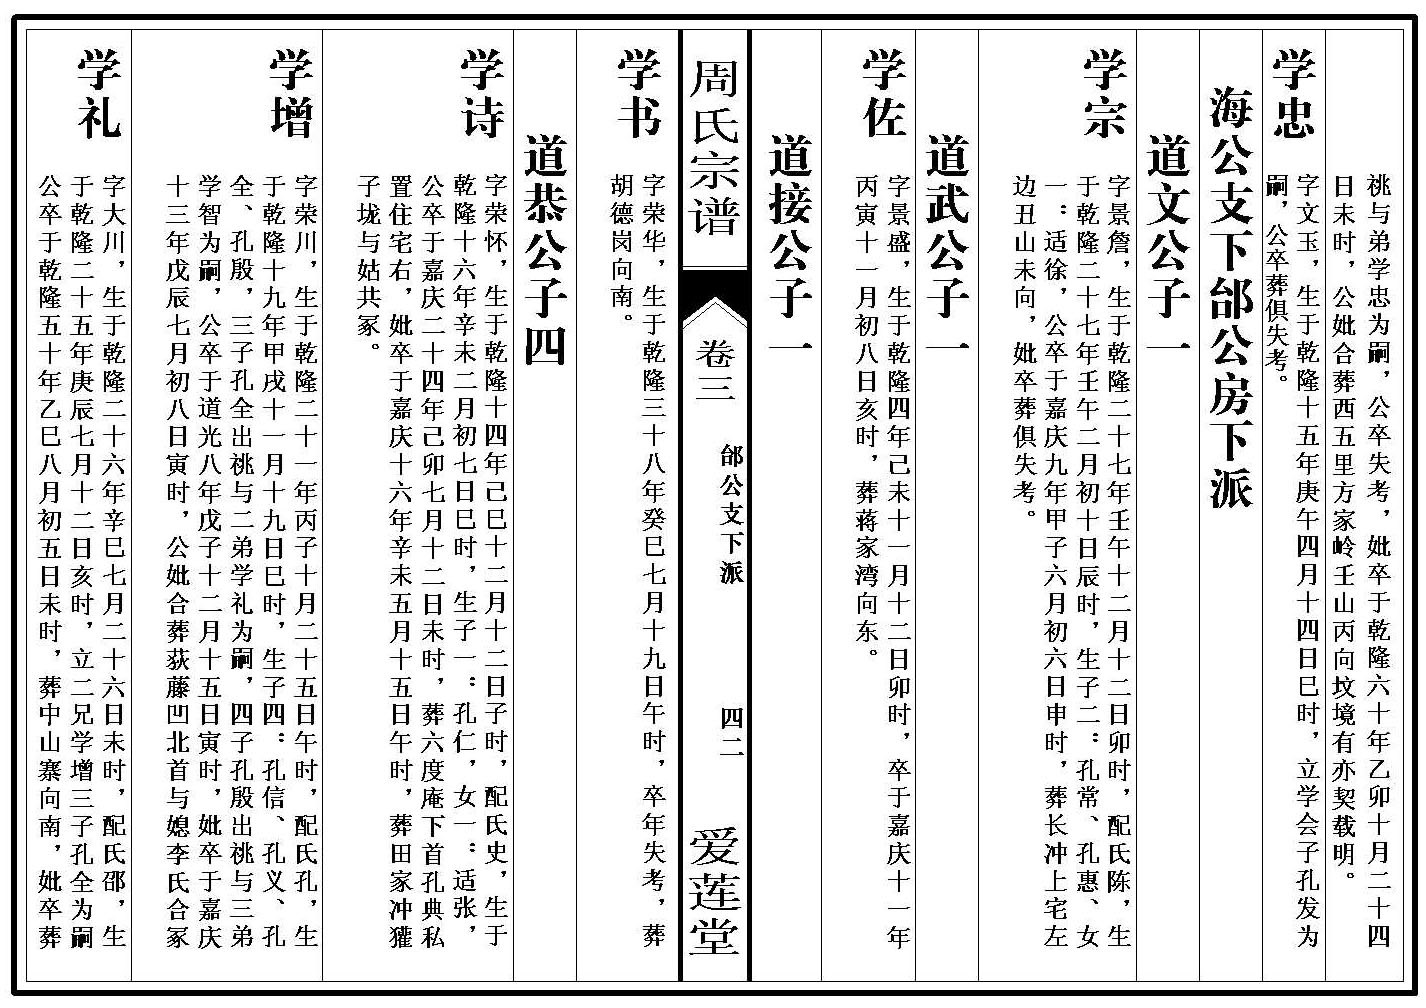 祧与弟学忠为嗣，公卒失考，妣卒于乾隆六十年乙卯十月二十四
日未时，公妣合葬西五里方家岭壬山丙向坟境有亦契载明。
学忠
字文玉，生于乾隆十五年庚午四月十四日巳时，立学会子孔发为
嗣，公卒葬俱失考。
海公支下邰公房下派
道文公子一
学宗
字景詹，生于乾隆二十七年壬午十二月十二日卯时，配氏陈，生
于乾隆二十七年壬午二月初十日辰时，生子二：孔常、孔惠、女
一：适徐，公卒于嘉庆九年甲子六月初六日申时，葬长冲上宅左
边丑山未向，妣卒葬俱失考。
道武公子一
学佐
字景盛，生于乾隆四年己未十一月十二日卯时，卒于嘉庆十一年
丙寅十一月初八日亥时，葬蒋家湾向东。
道接公子一
周氏宗谱
卷三
邰公支下派
四二
爱莲堂
学书
字荣华，生于乾隆三十八年癸巳七月十九日午时，卒年失考，葬
胡德岗向南。
道恭公子四
学诗
字荣怀，生于乾隆十四年己巳十二月十二日子时，配氏史，生于
乾隆十六年辛未二月初七日巳时，生子一：孔仁，女一：适张，
公卒于嘉庆二十四年己卯七月十二日未时，葬六度庵下首孔典私
置住宅右，妣卒于嘉庆十六年辛未五月十五日午时，葬田家冲獾
子垅与姑共冢。
学增
字荣川，生于乾隆二十一年丙子十月二十五日午时，配氏孔，生
于乾隆十九年甲戌十一月十九日巳时，生子四：孔信、孔义、孔
全、孔殷，三子孔全出祧与二弟学礼为嗣，四子孔殷出祧与三弟
学智为嗣，公卒于道光八年戊子十二月十五日寅时，妣卒于嘉庆
十三年戊辰七月初八日寅时，公妣合葬荻藤凹北首与媳李氏合冢
学礼
字大川，生于乾隆二十六年辛巳七月二十六日未时，配氏邵，生
于乾隆二十五年庚辰七月十二日亥时，立二兄学增三子孔全为嗣
公卒于乾隆五十年乙巳八月初五日未时，葬中山寨向南，妣卒葬